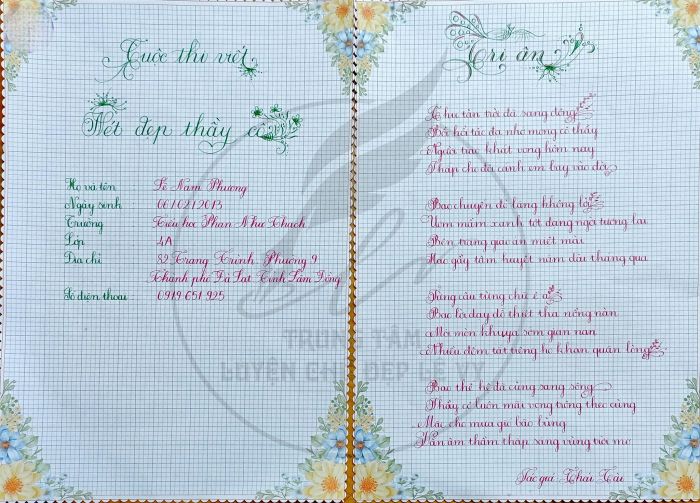 Cuộc thi viết
Nét đẹp thầy cô
Họ và tên : Lê Nam Phương
Ngày sinh : 06/02/2013
Trường : Tiểu học Phan Như Thạch
Lớp : 4A
Địa chỉ : 82 Trạng Trình. Phường 9
Thành phố Đà Lạt. Tỉnh Lâm Đồng
Số điện thoại : 0919 651 925
Tri ân
Thu tàn trời đã sang đông
Bồi hồi dạ nhớ mong cô thầy
Người trao khát vọng hôm nay
Tháp cho đôi cánh em bay vào đời
Bao chuyến đò lặng không lời
Ươm mầm xanh tốt dạng ngời tương lai
Bên trang giáo án miệt mài
Hao gầy tâm huyết năm dài tháng qua
Từng câu từng chữ ê a
Bao lời dạy dỗ thiết tha nồng nàn
Mỏi mòn khuya sớm gian nan
Nhiều đêm tắt tiếng ho khan quặn lòng
Bao thế hệ đã cùng sang sông
Thầy cô luôn mãi vọng trông theo cùng
Mặc cho mưa gió bão bùng
Vẫn âm thầm thắp sáng vùng trời mơ
Tác giả: Thái Tài
TRUNG TÂM
LUYỆN CHỮ ĐẸP LÊ VY